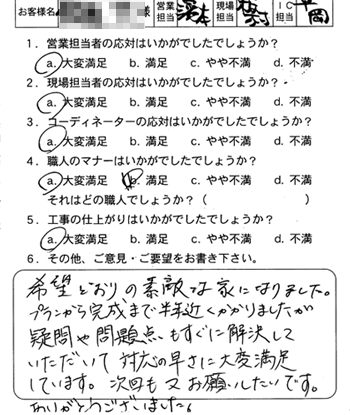 お客様名 様 営業担当 現場担当 IC担当 平岡
1. 営業担当者の応対はいかがでしたでしょうか？
a. 大変満足 b. 満足 c. やや不満 d. 不満
2. 現場担当者の応対はいかがでしたでしょうか？
a. 大変満足 b. 満足 c. やや不満 d. 不満
3. コーディネーターの応対はいかがでしたでしょうか？
a. 大変満足 b. 満足 c. やや不満 d. 不満
4. 職人のマナーはいかがでしたでしょうか？
a. 大変満足 b. 満足 c. やや不満 d. 不満
それはどの職人でしょうか？（ ）
5. 工事の仕上がりはいかがでしたでしょうか？
a. 大変満足 b. 満足 c. やや不満 d. 不満
6. その他、ご意見・ご要望をお書き下さい。
希望どおりの素敵な家になりました。
プランから完成まで半年近くかかりましたが
疑問や問題点もすぐに解決して
いただいて 対応の早さに大変満足
しています。次回も又お願いしたいです。
ありがとうございました。